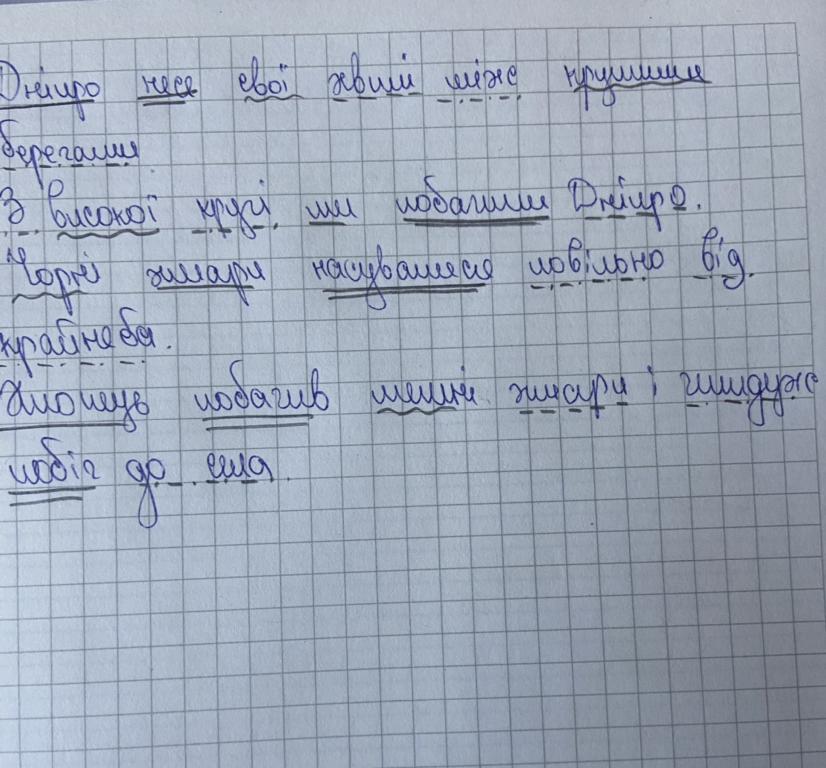 Дніпро несе свої хвилі між крутими
берегами
З високої кручі ми побачили Дніпро.
Чорні хмари насувалися повільно від
крайнеба.
Хлопець побачив темні хмари і чимдуж
побіг до села.